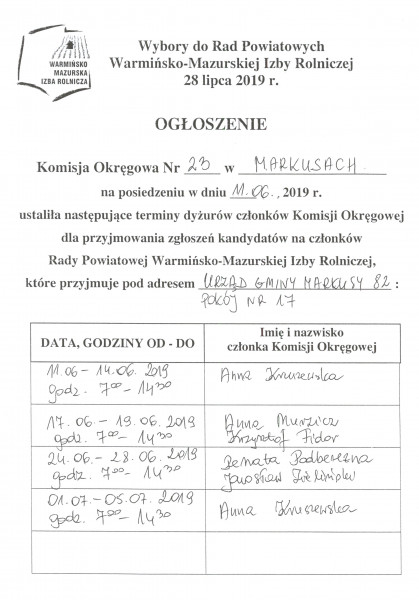 WARMIŃSKO
MAZURSKA
IZBA ROLNICZA
Wybory do Rad Powiatowych
Warmińsko-Mazurskiej Izby Rolniczej
28 lipca 2019 r.
OGŁOSZENIE
Komisja Okręgowa Nr 23 w MARKUSACH
na posiedzeniu w dniu 11.06., 2019 r.
ustaliła następujące terminy dyżurów członków Komisji Okręgowej
dla przyjmowania zgłoszeń kandydatów na członków
Rady Powiatowej Warmińsko-Mazurskiej Izby Rolniczej,
które przyjmuje pod adresem URZĄD GMINY MARKUSY 82 :
POKÓJ NR 17
DATA, GODZINY OD - DO
Imię i nazwisko
członka Komisji Okręgowej
11.06 - 14.06.2019
godz. 7⁰⁰ - 14³⁰
Anna Kruszewska
17.06 - 19.06.2019
godz. 7⁰⁰ - 14³⁰
Anna Murzicz
Krzysztof Fidor
24.06. - 28.06.2019
godz. 7⁰⁰ - 14³⁰
Renata Podberezna
Jarosław
01.07. - 05.07.2019
godz. 7⁰⁰ - 14³⁰
Anna Kruszewska